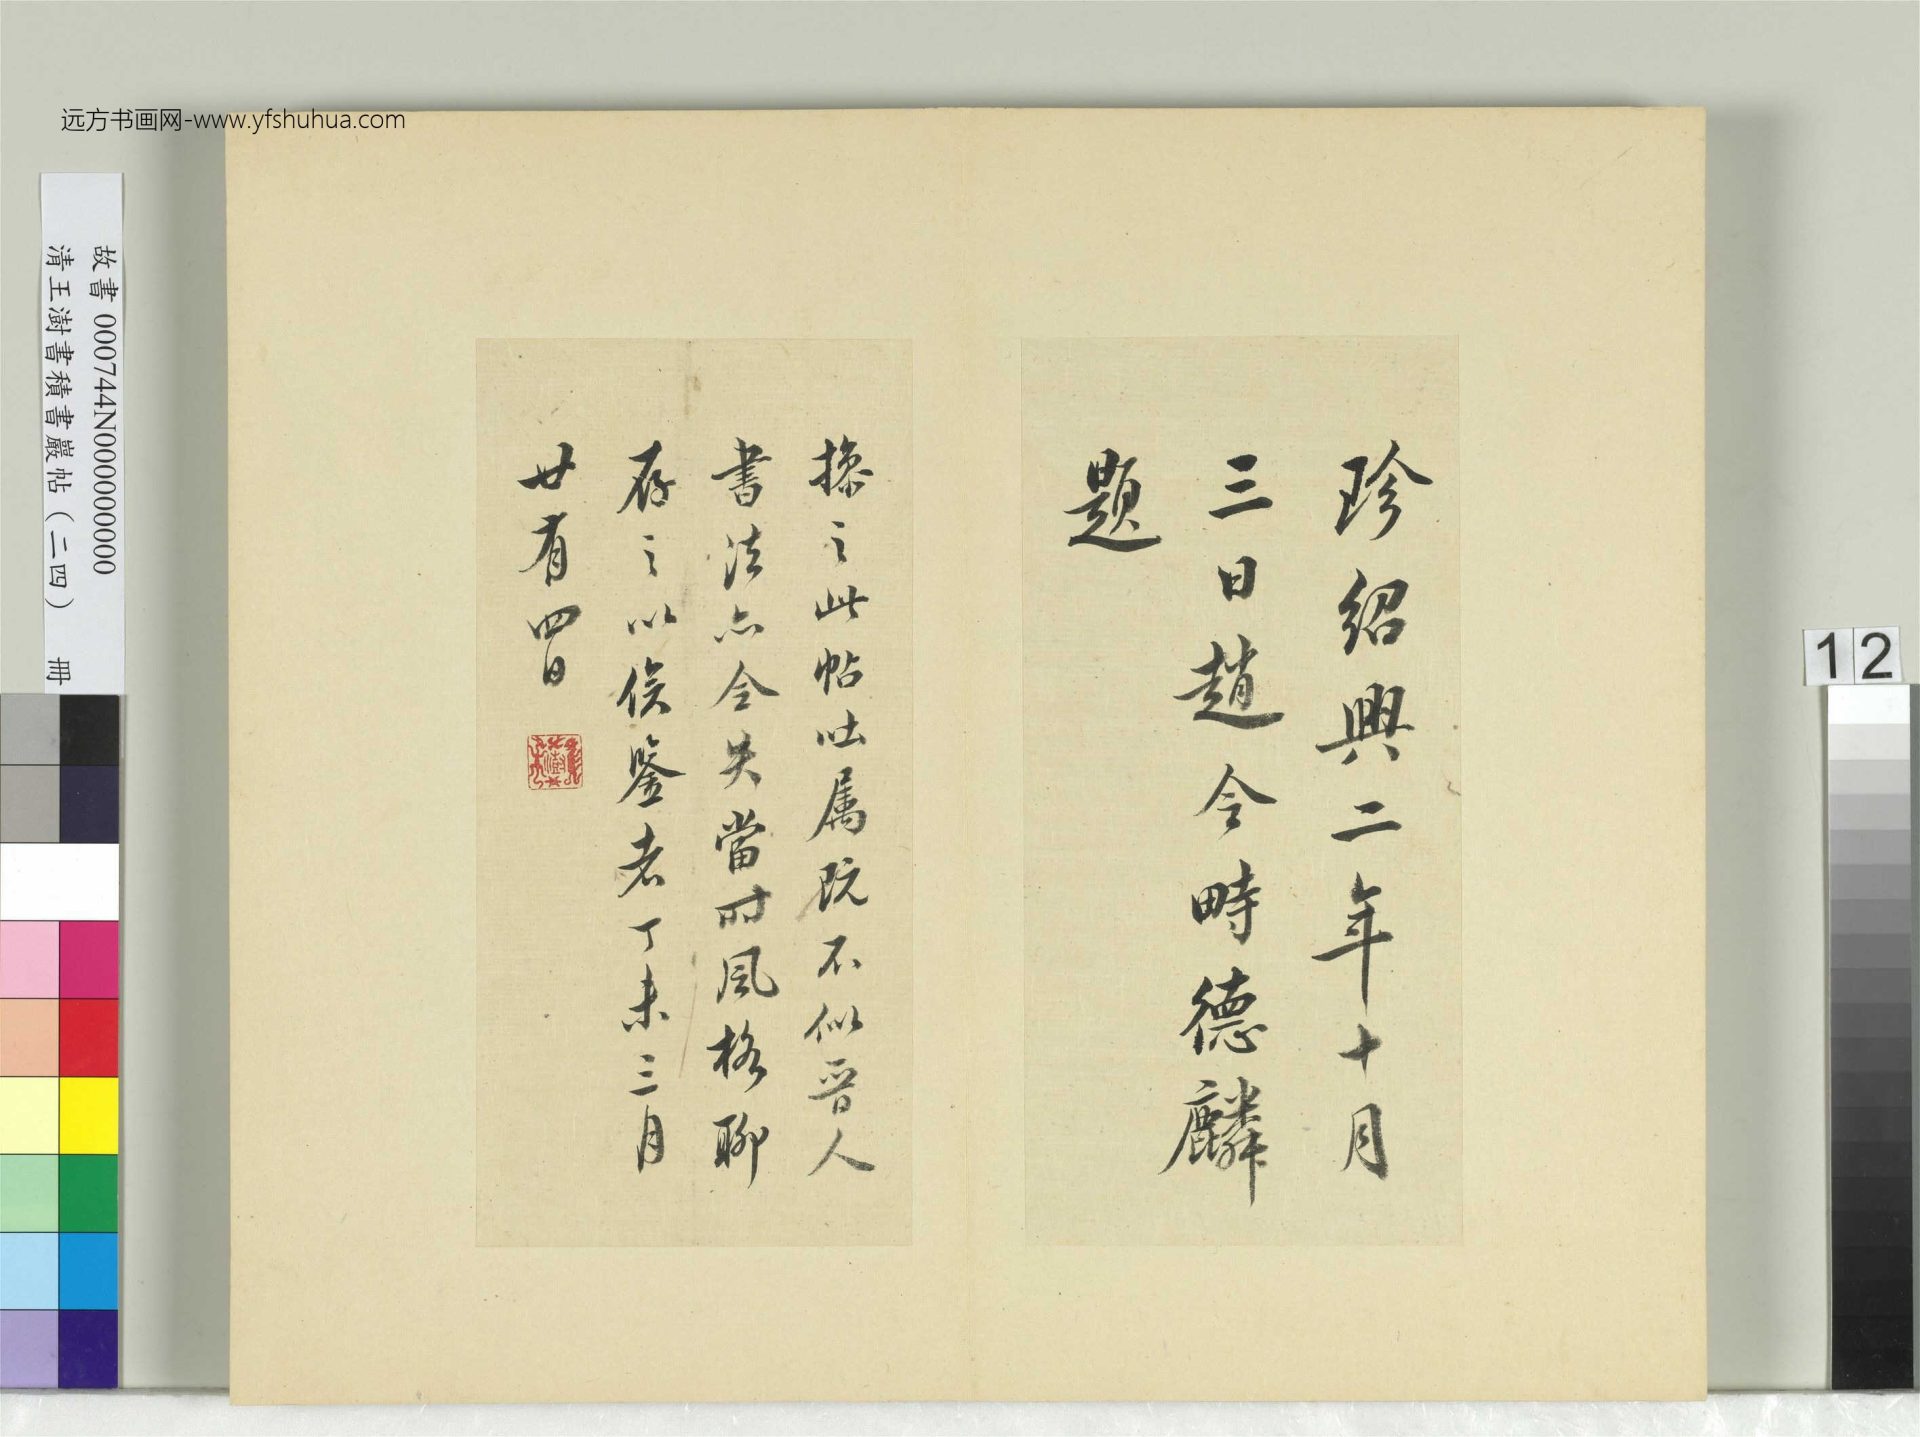 远方书画网-www.yfshuhua.com
故書 000744N000000000
清王澍書積書巖帖(二四) 冊
12
珍紹興二年十月
三日趙令畤德麟
題
操之此帖吐属既不似晉人
書法亦全失當时風格聊
存之以俟鉴者丁未三月
廿有四日